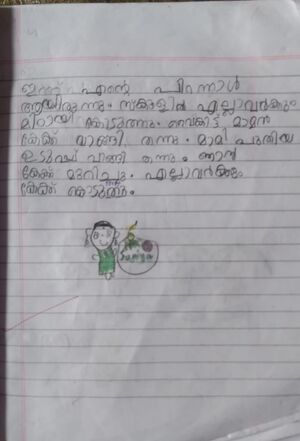 ഇന്ന് എന്റെ പിറന്നാൾ
ആയിരുന്നു. സ്കൂളിൽ എല്ലാവർക്കും
മിഠായി കൊടുത്തു. വൈകിട്ട് മാമൻ
കേക്ക് വാങ്ങി തന്നു. മാമി പുതിയ
ഉടുപ്പ് വാങ്ങി തന്നു. ഞാൻ
കേക്ക് മുറിച്ചു. എല്ലാവർക്കും
കേക്ക് കൊടുത്തു.